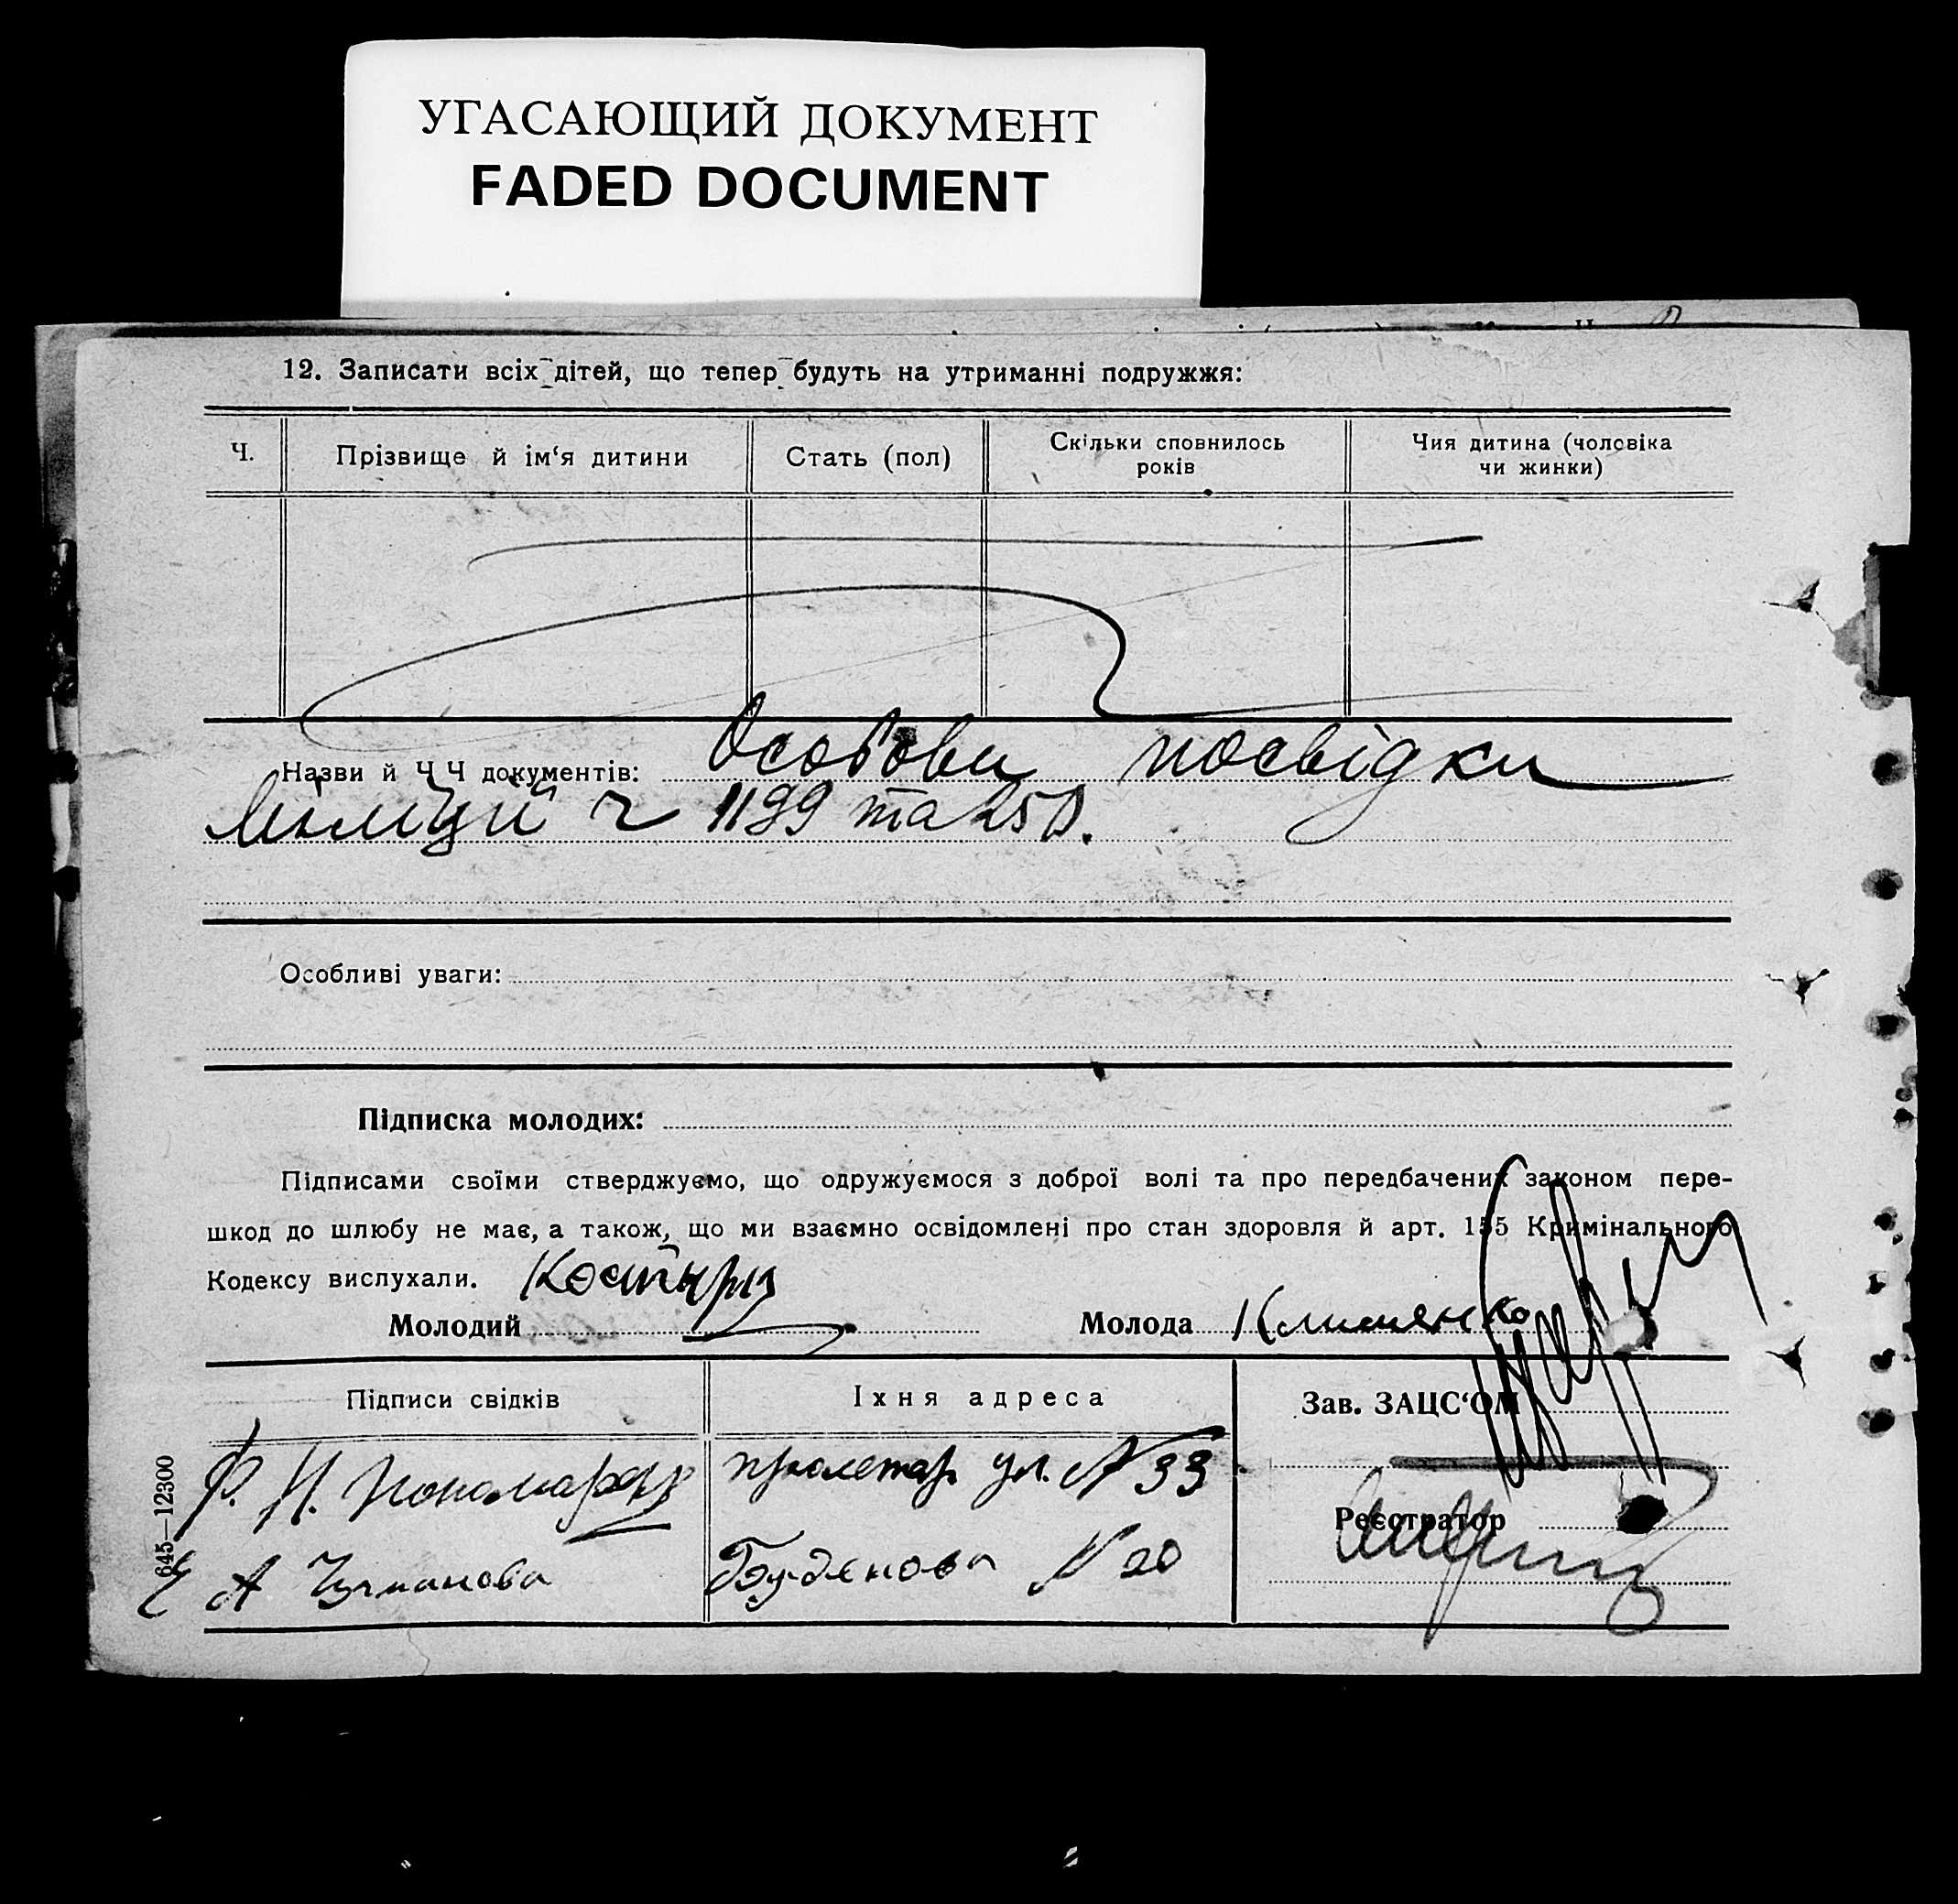 УГАСАЮЩИЙ ДОКУМЕНТ
FADED DOCUMENT
12. Записати всіх дітей, що тепер будуть на утриманні подружжя:
Ч.
Прізвище й ім‘я дитини
Стать (пол)
Скільки сповнилось
років
Чия дитина (чоловіка
чи жинки)
Назви й Ч Ч документів: Особови посвідки
Міліції ч 1199 та 250.
Особливі уваги:
Підписка молодих:
Підписами своїми стверджуємо, що одружуємося з доброї волі та про передбачених законом пере-
шкод до шлюбу не має, а також, що ми взаємно освідомлені про стан здоровля й арт. 155 Кримінального
Кодексу вислухали.
Молодий Костыря
Молода Клименко
Підписи свідків
Їхня адреса
Зав. ЗАЦС‘ОМ
Ф. И. пролетар. ул. № 33
Реєстратор
Е А № 20
645—12300